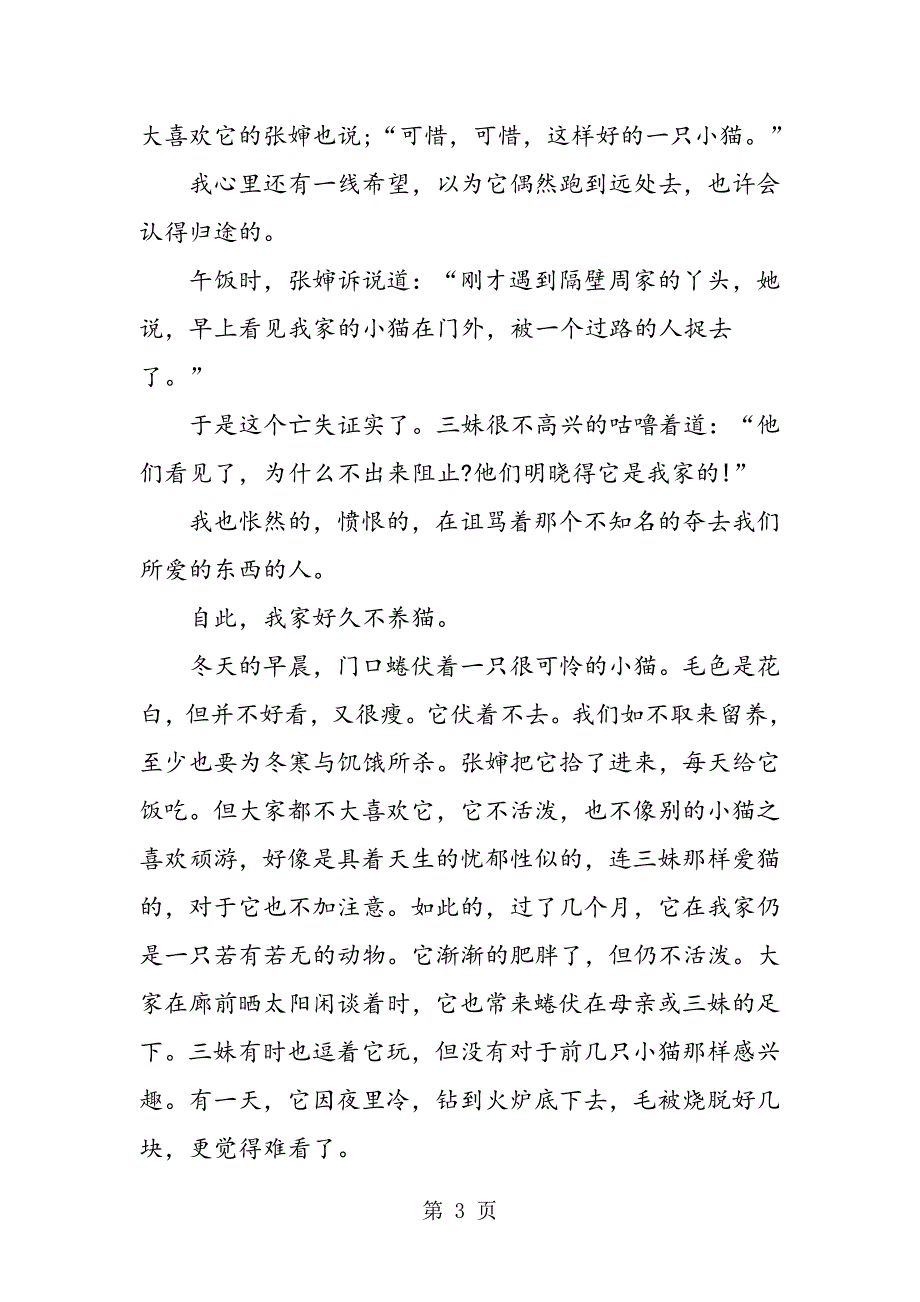 大喜欢它的张婶也说;“可惜，可惜，这样好的一只小猫。”
我心里还有一线希望，以为它偶然跑到远处去，也许会
认得归途的。
午饭时，张婶诉说道：“刚才遇到隔壁周家的丫头，她
说，早上看见我家的小猫在门外，被一个过路的人捉去
了。”
于是这个亡失证实了。三妹很不高兴的咕噜着道：“他
们看见了，为什么不出来阻止?他们明晓得它是我家的!”
我也怅然的，愤恨的，在诅骂着那个不知名的夺去我们
所爱的东西的人。
自此，我家好久不养猫。
冬天的早晨，门口蜷伏着一只很可怜的小猫。毛色是花
白，但并不好看，又很瘦。它伏着不去。我们如不取来留养，
至少也要为冬寒与饥饿所杀。张婶把它拾了进来，每天给它
饭吃。但大家都不大喜欢它，它不活泼，也不像别的小猫之
喜欢顽游，好像是具着天生的忧郁性似的，连三妹那样爱猫
的，对于它也不加注意。如此的，过了几个月，它在我家仍
是一只若有若无的动物。它渐渐的肥胖了，但仍不活泼。大
家在廊前晒太阳闲谈着时，它也常来蜷伏在母亲或三妹的足
下。三妹有时也逗着它玩，但没有对于前几只小猫那样感兴
趣。有一天，它因夜里冷，钻到火炉底下去，毛被烧脱好几
块，更觉得难看了。
第 3 页